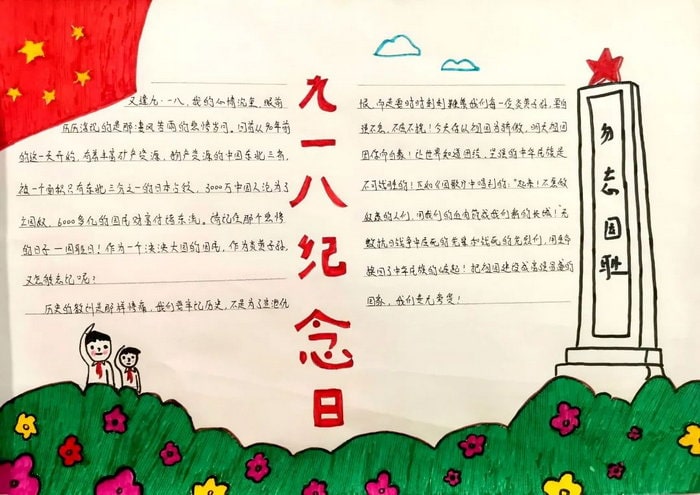 九一八纪念日
又逢九·一八，我的心情沉重，眼前
历历浮现的是那凄风苦雨的悲惨岁月。回首从90年前
的这一天开始，有着丰富矿产资源，物产资源的中国东北三省，
被一个面积只有东北三分之一的日本占领，3000万中国人沦为了
亡国奴，6000多亿的国民财富付诸东流。铭记住那个悲惨
的日子—国耻日！作为一个泱泱大国的国民，作为炎黄子孙，
又怎能忘记呢？
历史的教训是那样惨痛，我们要牢记历史，不是为了延续仇
恨，而是要时时刻刻鞭策我们每一位炎黄子孙，要自
强不息，不屈不挠！今天在以祖国为骄傲，明天祖国
因你而自豪！让世界知道团结，坚强的中华民族是
不可战胜的！正如《国歌》中唱到的："起来！不愿做
奴隶的人们，用我们的血肉筑成我们新的长城！"无
数抗日战争中死的先辈和战死的先烈们，用生命
换回了中华民族的崛起！把祖国建设成富强昌盛的
国家，我们责无旁贷！
勿忘国耻